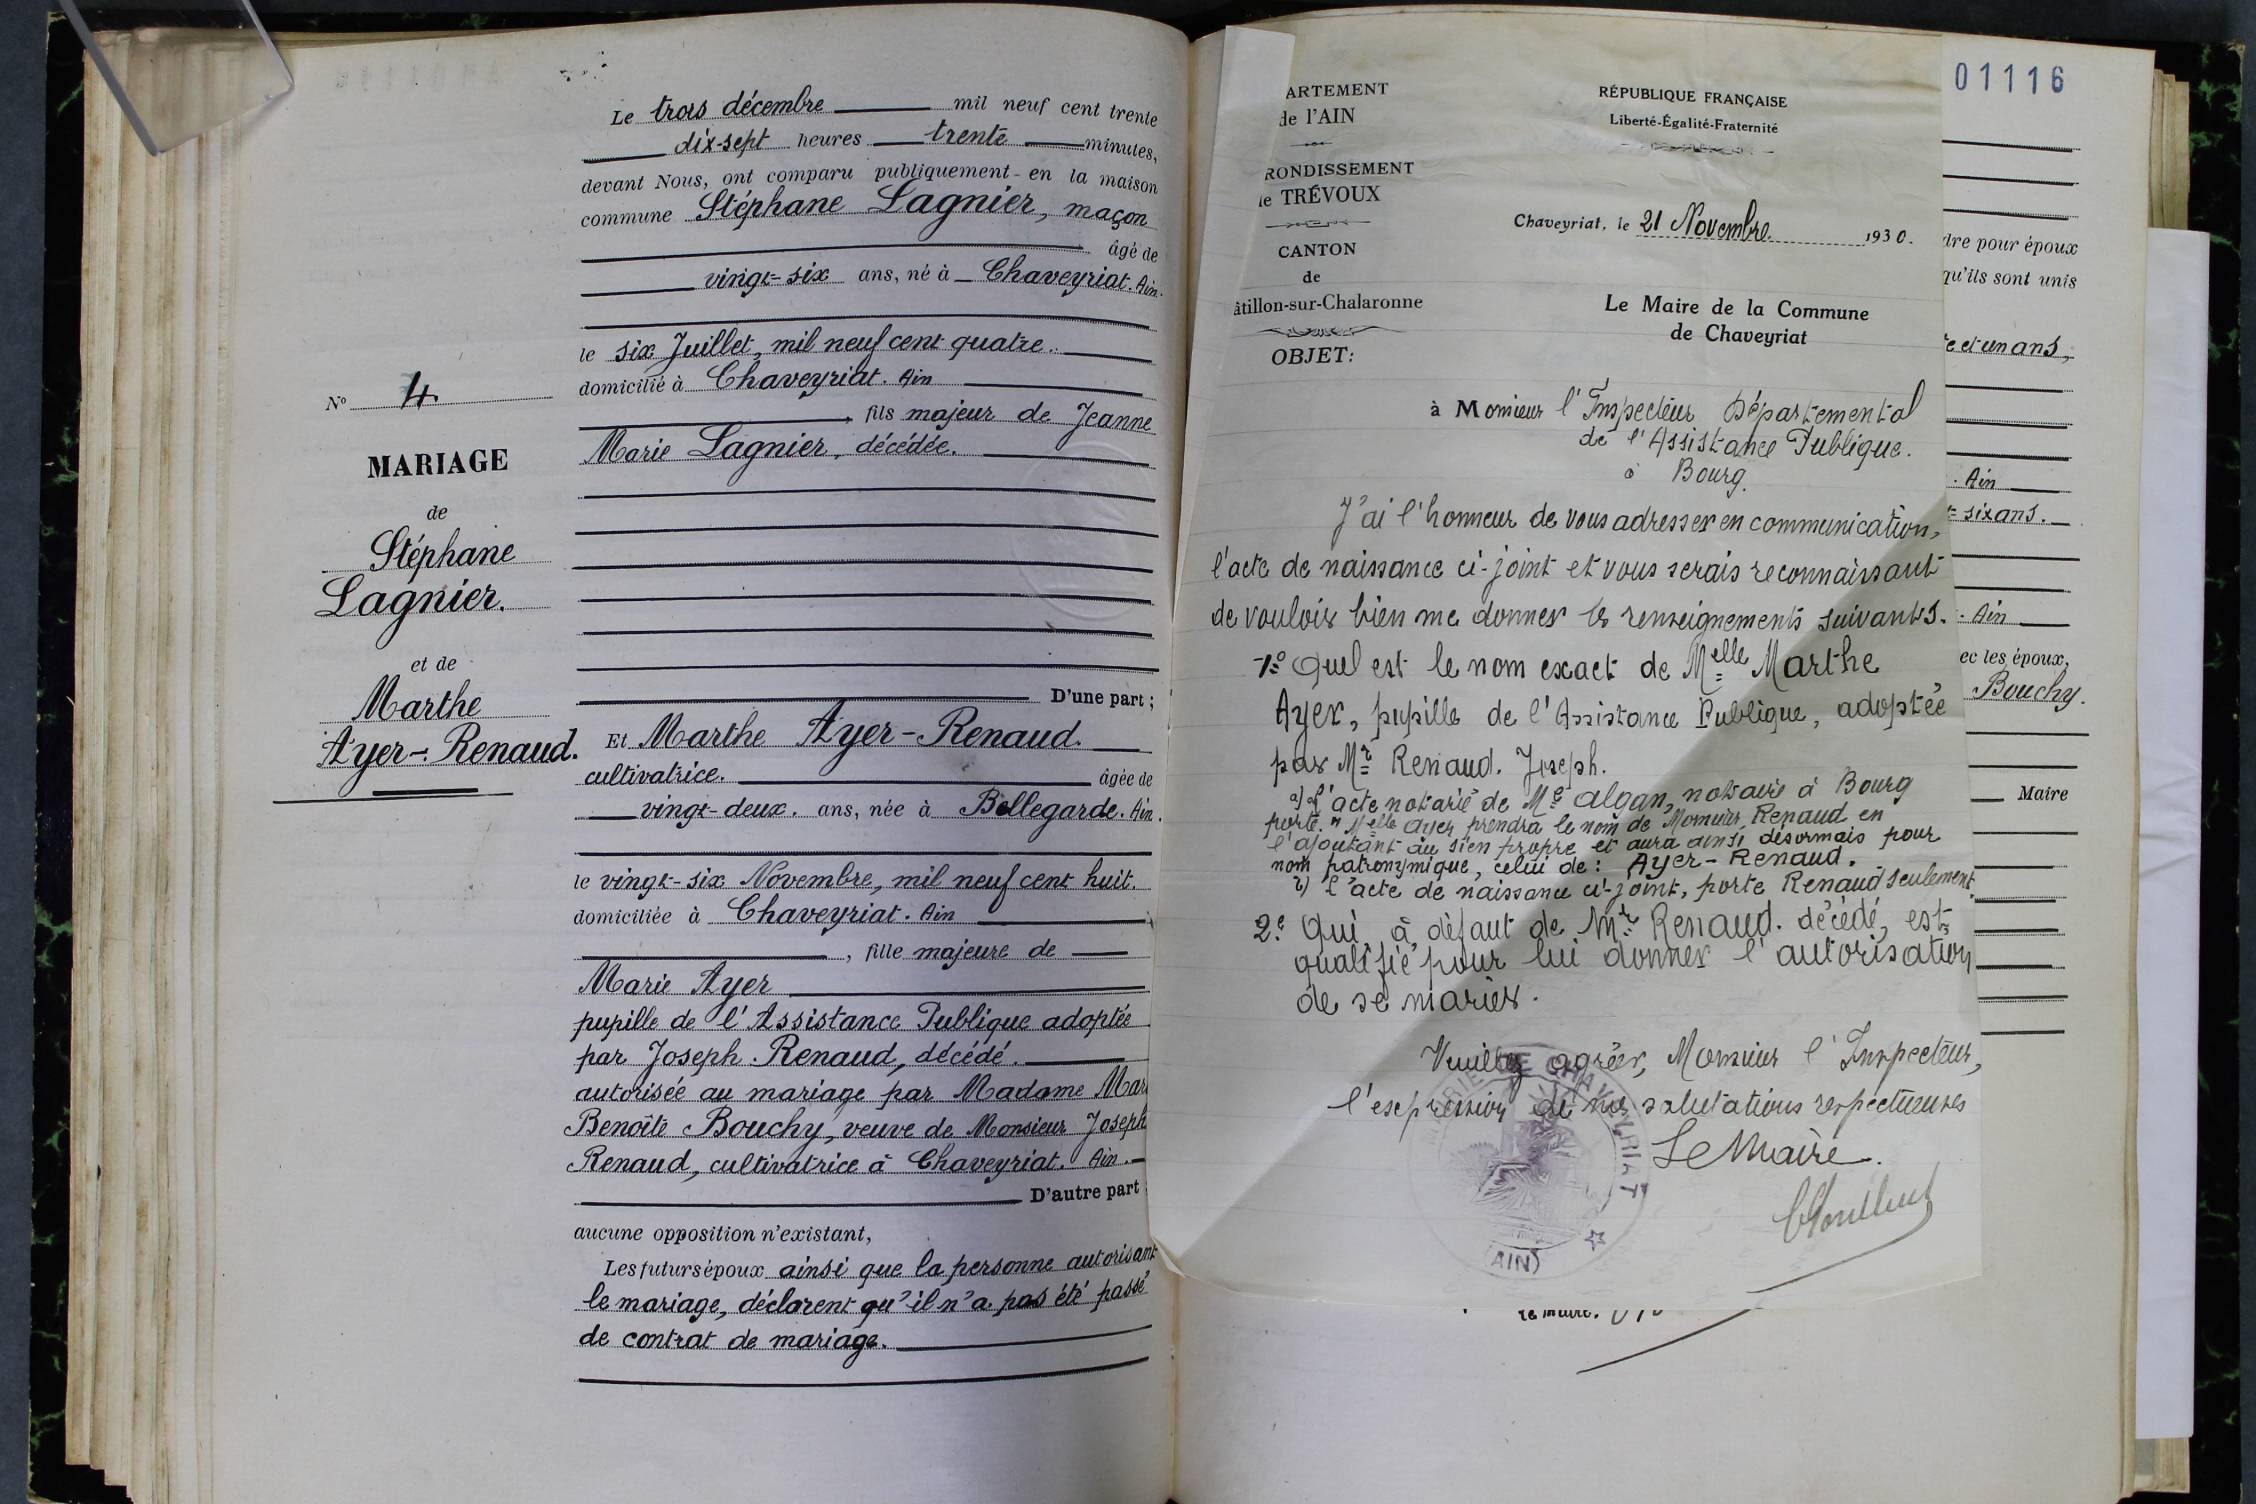 Le trois décembre mil neuf cent trente
dix-sept heures trente minutes,
devant Nous, ont comparu publiquement en la maison
commune Stéphane Lagnier, maçon
âgé de
vingt-six ans, né à Chaveyriat. Ain.
le six Juillet, mil neuf cent quatre.
domicilié à Chaveyriat. Ain
, fils majeur de Jeanne
Marie Lagnier, décédée.
D'une part ;
Et Marthe Ayer-Renaud.
cultivatrice. âgée de
vingt-deux. ans, née à Bellegarde. Ain.
le vingt-six Novembre, mil neuf cent huit.
domiciliée à Chaveyriat. Ain
, fille majeure de
Marie Ayer
pupille de l'Assistance Publique adoptée
par Joseph Renaud, décédé.
autorisée au mariage par Madame Mar
Benoîte Bouchy, veuve de Monsieur Joseph
Renaud, cultivatrice à Chaveyriat. Ain.
D'autre part
aucune opposition n'existant,
Les futurs époux ainsi que la personne autorisant
le mariage, déclarent qu'il n'a pas été passé
de contrat de mariage.
No 4.
MARIAGE
de
Stéphane
Lagnier.
et de
Marthe
Ayer-Renaud.
ARTEMENT
de l'AIN
RONDISSEMENT
le TRÉVOUX
CANTON
de
âtillon-sur-Chalaronne
OBJET:
RÉPUBLIQUE FRANÇAISE
Liberté-Égalité-Fraternité
Chaveyriat, le 21 Novembre 1930.
Le Maire de la Commune
de Chaveyriat
à Monsieur l'Inspecteur Départemental
de l'Assistance Publique.
à Bourg.
J'ai l'honneur de vous adresser en communication,
l'acte de naissance ci-joint et vous serais reconnaissant
de vouloir bien me donner les renseignements suivants.
1º Quel est le nom exact de Melle Marthe
Ayer, pupille de l'Assistance Publique, adoptée
par Mr Renaud. Joseph.
a) L'acte notarié de Me Algan, notaire à Bourg
porte. "Melle Ayer prendra le nom de Monsieur Renaud en
l'ajoutant au sien propre et aura ainsi désormais pour
nom patronymique, celui de : Ayer-Renaud.
2) L'acte de naissance ci-joint, porte Renaud seulement.
2º Qui, à défaut de Mr Renaud. décédé, est
qualifié pour lui donner l'autorisation
de se marier.
Veuillez agréer, Monsieur l'Inspecteur,
l'expression de mes salutations respectueuses
Le Maire.
MAIRIE DE CHAVEYRIAT
(AIN)
le maire.
01116
dre pour époux
qu'ils sont unis
te et un ans,
. Ain
t-six ans.
. Ain
ec les époux,
Bouchy.
Maire